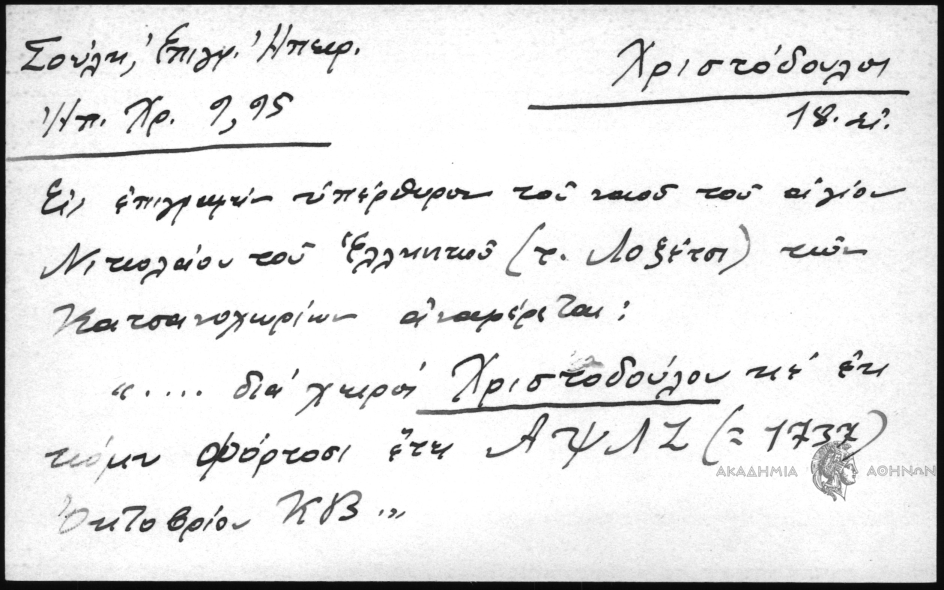 Σούλη, Ἐπιγρ. Ἠπειρ.
Χριστόδουλοι
Ἠπ. Χρ. 9, 95
18. αἰ.
Εἰς ἐπιγραφὴν ὑπέρθυρον τοῦ ναοῦ τοῦ ἁγίου
Νικολάου τοῦ Ἑλληνικοῦ (τ. Λοζέτσι) τῶν
Κατσανοχωρίων ἀναφέρεται:
".... διὰ χειρὸς Χριστοδούλου κὲ ἐκ
κόμη Φόρτοσι ἔτη ΑΨΛΖ (= 1737)
Ὀκτοβρίου ΚΒ"
ΑΚΑΔΗΜΙΑ ΑΘΗΝΩΝ